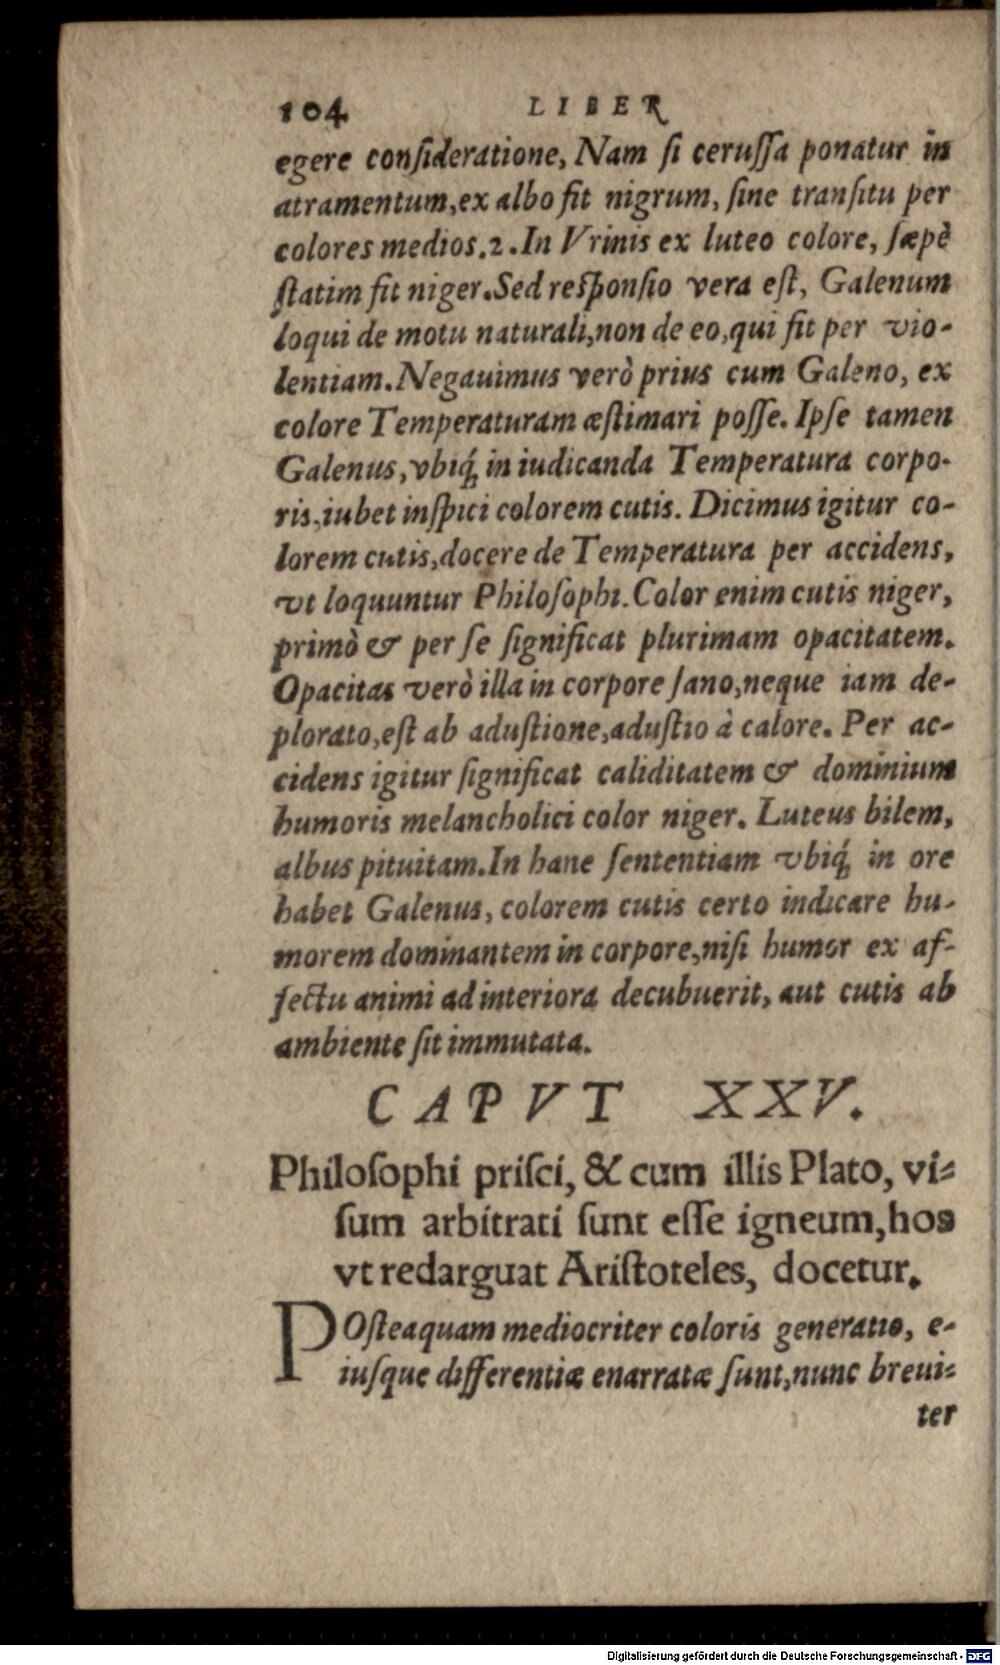 104 LIBER
egere conſideratione, Nam ſi ceruſſa ponatur in
atramentum, ex albo fit nigrum, ſine tranſitu per
colores medios. 2. In Vrinis ex luteo colore, ſæpè
ſtatim fit niger. Sed reſponſio vera eſt, Galenum
loqui de motu naturali, non de eo, qui fit per vio-
lentiam. Negauimus verò prius cum Galeno, ex
colore Temperaturam æſtimari poſſe. Ipſe tamen
Galenus, vbiq́; in iudicanda Temperatura corpo-
ris, iubet inſpici colorem cutis. Dicimus igitur co-
lorem cutis, docere de Temperatura per accidens,
vt loquuntur Philoſophi. Color enim cutis niger,
primò & per ſe ſignificat plurimam opacitatem.
Opacitas verò illa in corpore ſano, neque iam de-
plorato, eſt ab aduſtione, aduſtio à calore. Per ac-
cidens igitur ſignificat caliditatem & dominium
humoris melancholici color niger. Luteus bilem,
albus pituitam. In hane ſententiam vbiq́; in ore
habet Galenus, colorem cutis certo indicare hu-
morem dominantem in corpore, niſi humor ex af-
fectu animi ad interiora decubuerit, aut cutis ab
ambiente ſit immutata.
CAPVT XXV.
Philoſophi priſci, & cum illis Plato, vi-
ſum arbitrati ſunt eſſe igneum, hos
vt redarguat Ariſtoteles, docetur.
POſteaquam mediocriter coloris generatio, e-
iuſque differentiæ enarratæ ſunt, nunc breui-
ter
Digitalisierung gefördert durch die Deutsche Forschungsgemeinschaft - DFG